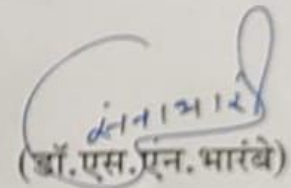 (डॉ.एस.एन.भारंबे)